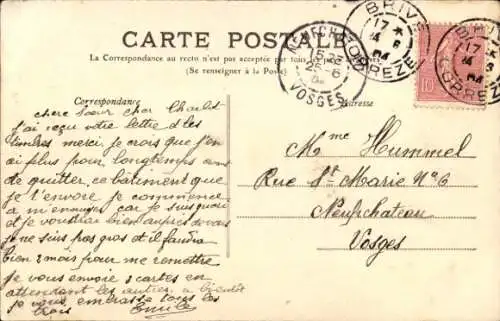 CARTE POSTALE
La Correspondance au recto n'est pas acceptée par tous
(Se renseigner à la Poste)
Correspondance
NEUFCHATEAU
VOSGES
BRIVE
CORRÈZE
17
04
BRIVE
CORRÈZE
17
04
10
chère Sœur cher Charlot
j'ai reçu votre lettre et les
timbres merci je crois que j'en
ai plus pour longtemps avant
de quitter. ce bâtiment que
je t'envoie je commence
a m'ennuyer car je suis
et je voudrai bien auprès de vous
je ne suis pas gros et il faudra
bien 2 mois pour me remettre
je vous envoie 2 cartes en
attendant les autres. a bientôt
je vous embrasse tous les
trois Emile
Mme Hummel
Rue St Marie No 6
Neufchateau
Vosges